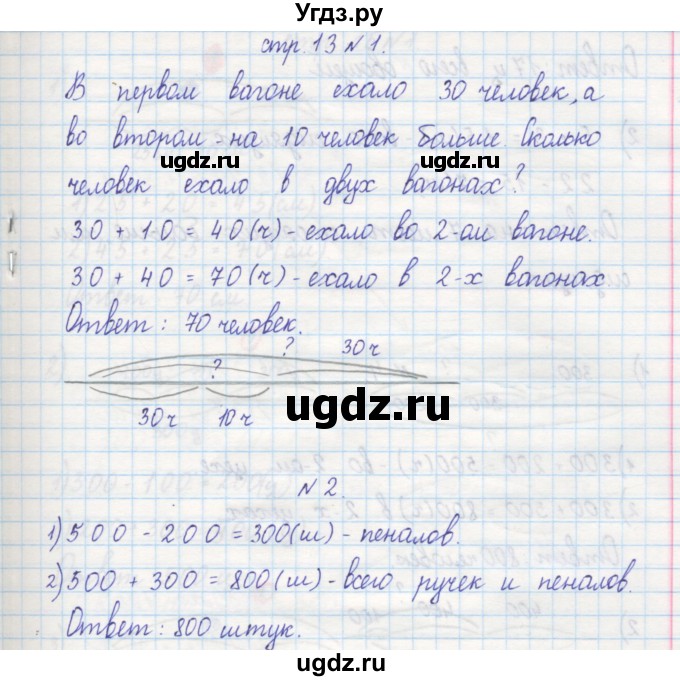 Угдз.ру
стр. 13 № 1.
В первом вагоне ехало 30 человек, а
во втором - на 10 человек больше. Сколько
человек ехало в двух вагонах?
30 + 10 = 40(ч) - ехало во 2-ом вагоне.
30 + 40 = 70(ч) - ехало в 2-х вагонах
Ответ: 70 человек.
? 30ч
?
30ч 10ч
№ 2.
1) 500 - 200 = 300(ш) - пеналов.
2) 500 + 300 = 800(ш) - всего ручек и пеналов.
Ответ: 800 штук.
ugdz.ru
ugdz.ru
ugdz.ru
ugdz.ru
ugdz.ru
ugdz.ru